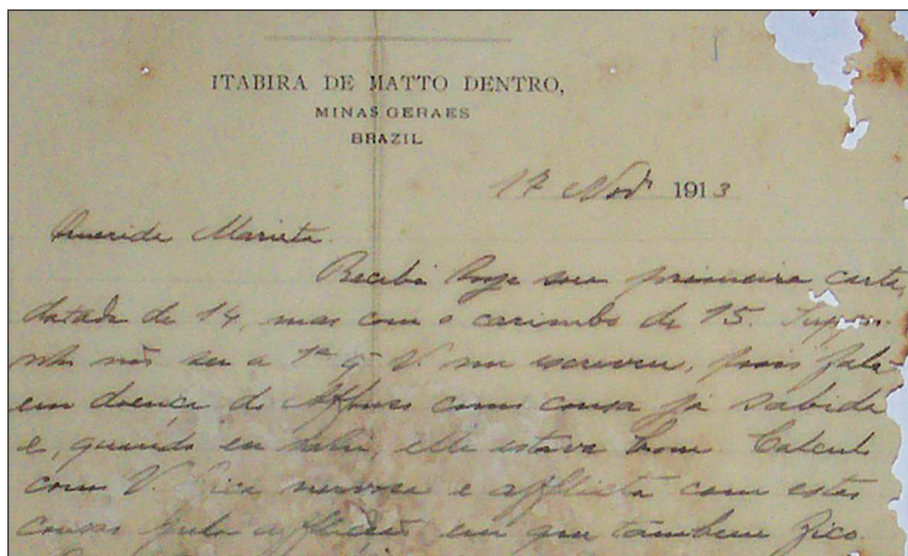 ITABIRA DE MATTO DENTRO,
MINAS GERAES
BRAZIL
17 Novr 1913
Querida Marieta
Recebi hoje sua primeira carta,
datada de 14, mas com o carimbo de 15. Suppo-
nho não ser a 1ª q̃ V. me escreveu, pois fala
em doença do Affonso como cousa já sabida
e, quando eu sahi, elle estava bom. Calculo
como V. fica nervosa e afflicta com estas
cousas pela afflicção em que tambem fico.